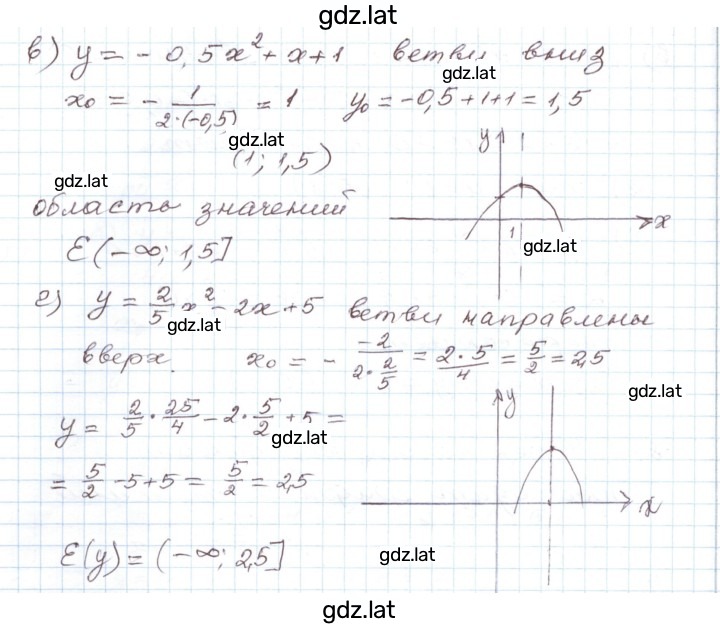 gdz.lat
в) y = - 0,5x² + x + 1 ветви вниз
gdz.lat
x₀ = - 1/(2·(-0,5)) = 1 y₀ = -0,5 + 1 + 1 = 1,5
gdz.lat
(1; 1,5)
y
gdz.lat
область значений
x
1
gdz.lat
E(-∞; 1,5]
г) y = 2/5 x² - 2x + 5 ветви направлены
gdz.lat
вверх. x₀ = - (-2)/(2·2/5) = (2·5)/4 = 5/2 = 2,5
gdz.lat
y
y = 2/5 · 25/4 - 2 · 5/2 + 5 =
gdz.lat
= 5/2 - 5 + 5 = 5/2 = 2,5
x
E(y) = (-∞; 2,5]
gdz.lat
gdz.lat